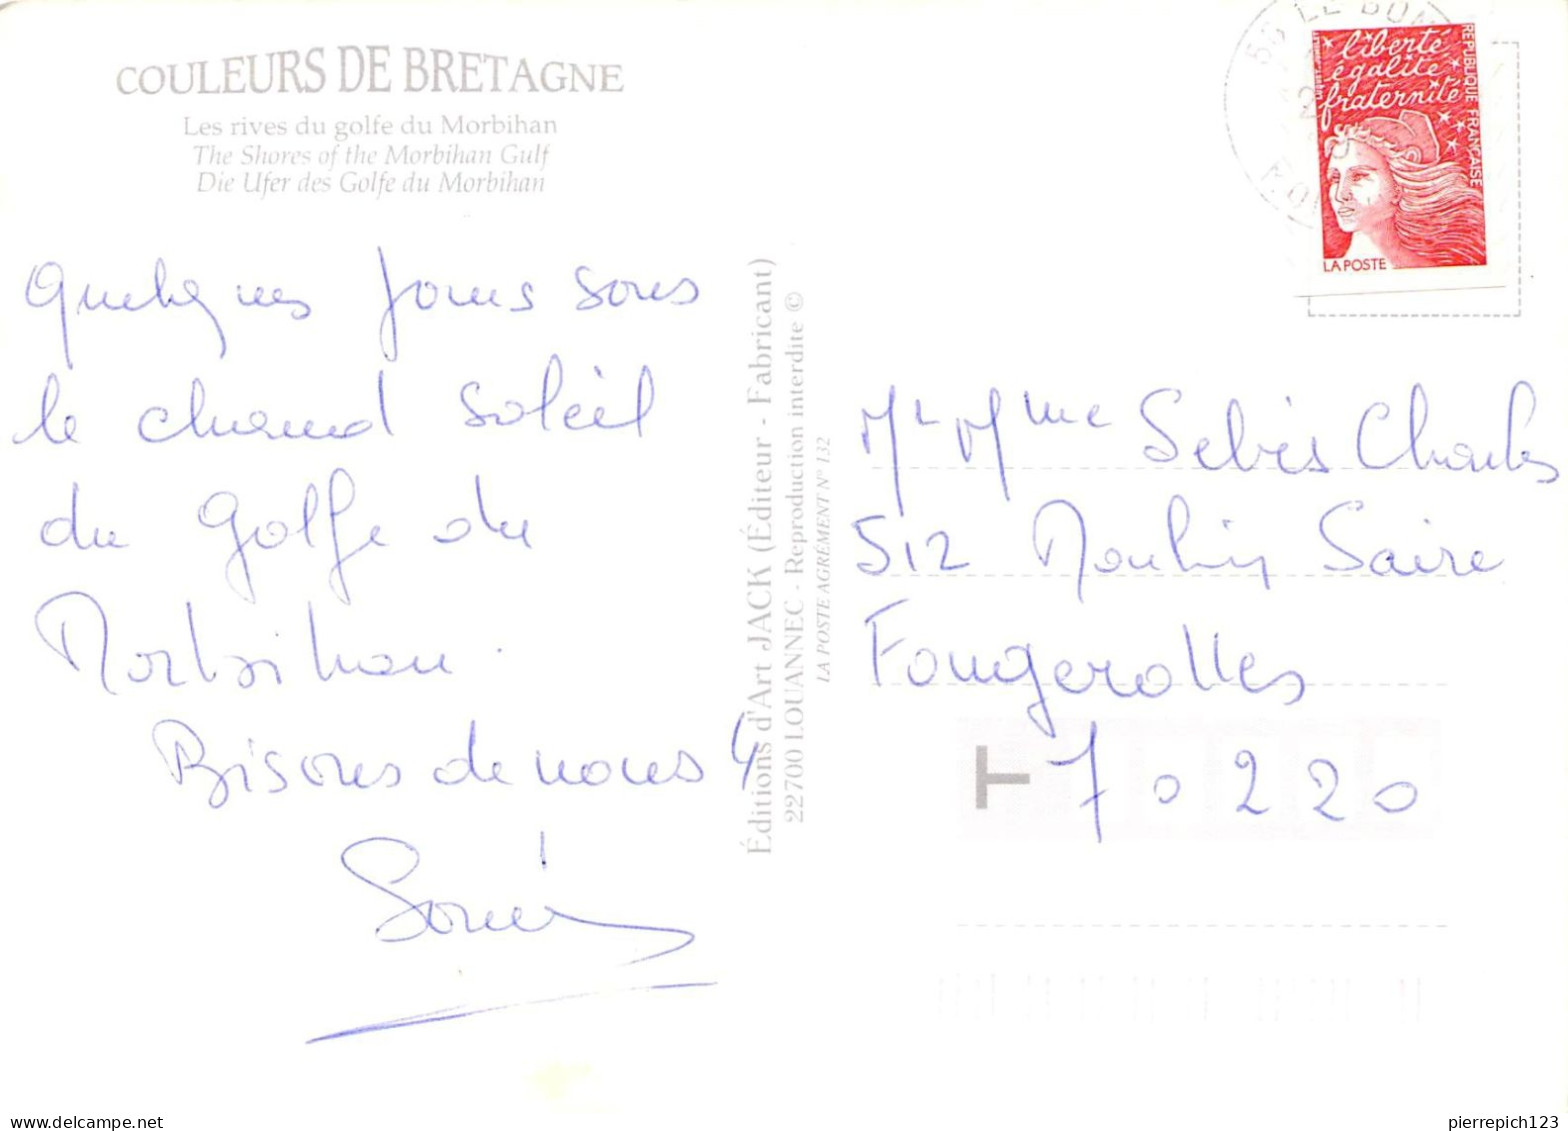 COULEURS DE BRETAGNE
Les rives du golfe du Morbihan
The Shores of the Morbihan Gulf
Die Ufer des Golfe du Morbihan
Quelques jours sous
le chaud soleil
du golfe du
Morbihan.
Bisous de nous 4
Éditions d'Art JACK (Éditeur - Fabricant)
22700 LOUANNEC - Reproduction interdite ©
LA POSTE AGRÉMENT N° 132
liberté
égalité
fraternité
RÉPUBLIQUE FRANÇAISE
LA POSTE
Mr Mme Sebès Charles
512 Moulin Saire
Fougerolles
70220
pierrepich123